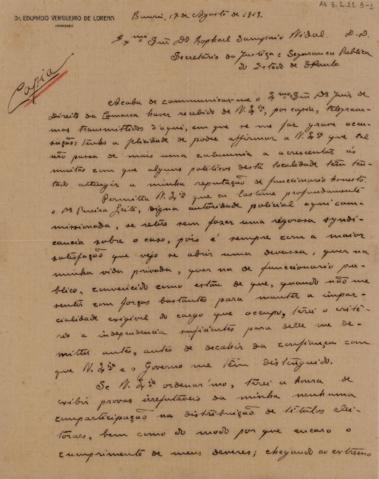 Dr. EDUARDO VERGUEIRO DE LORENA
Bauru, 17 de Agosto de 1913.
Exmo Snr. Dr. Raphael Sampaio Vidal. D.D.
Secretario da Justiça e Segurança Publica
do Estado de S. Paulo
Copia
Acaba de communicar-me o Snr. Dr. Juiz de
Direito da Comarca haver recebido de V. Excia, por copia, telegram-
mas transmittidos d'aqui, em que se me faz grave accu-
sação; tenho a felicidade de poder affirmar a V. Excia que tal
não passa de mais uma calumnia a accrescentar ás
muitas com que alguns politicos desta localidade têm ten-
tado attingir a minha reputação de funccionario honesto.
Permitta V. Excia que eu lastime profundamente
o Dr. Pereira Leite, digna autoridade policial aqui com-
missionada, se retire sem fazer uma rigorosa syndi-
cancia sobre o caso, pois é sempre com a maior
satisfação que vejo se abrir uma devassa, quer na
minha vida privada, quer na de funccionario pu-
blico, convencido como estou de que, quando não me
sentir com forças bastantes para manter a impar-
cialidade exigivel do cargo que occupo, terei o crite-
rio e independencia sufficientes para delle me de-
mittir antes, antes de decahir da confiança com
que V. Excia e o Governo me têm distinguido.
Se V. Excia ordenar-me, terei a honra de
exibir provas irrefutaveis da minha nenhuma
comparticipação na distribuição de titulos elei-
toraes, bem como do modo por que encaro o
cumprimento de meus deveres; chegando ao extremo